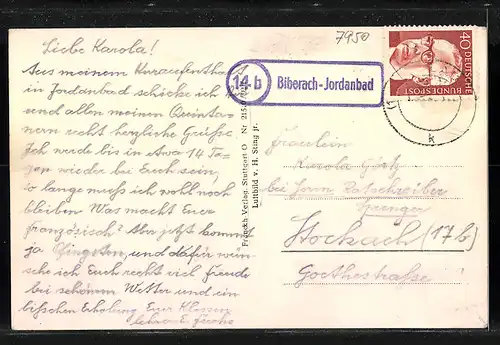 Liebe Karola!
Aus meinem Kuraufenthalt
in Jordanbad schicke ich Dir
und allen meinen Quinta-
nern recht herzliche Grüße.
Ich werde bis in etwa 14 Ta-
gen wieder bei Euch sein,
so lange muß ich wohl noch
bleiben. Was macht Euer
Französisch? Aber jetzt kommt
ja Pfingsten, und dafür wün-
sche ich Euch recht viel Freude
bei schönem Wetter und ein
bißchen Erholung. Euer Klassen-
lehrer
Franckh-Verlag, Stuttgart O Nr. 215
Luftbild v. H. Sting jr.
14b
Biberach-Jordanbad
7950
40
DEUTSCHE
BUNDESPOST
k
Fräulein
Karola Götz
bei Herrn Ratschreiber
Stockach (17b)
Goethestraße